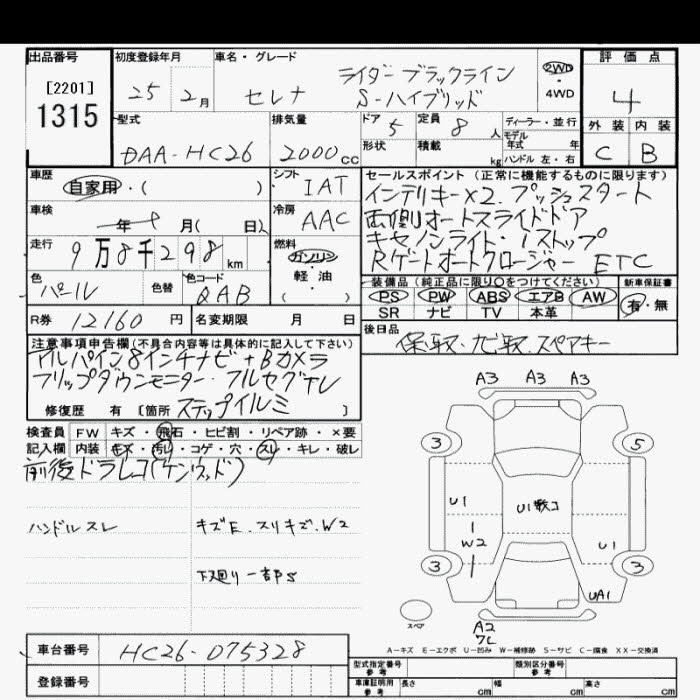 出品番号 初度登録年月 車名・グレード 評価点
[2201] 25 2月 セレナ ライダー ブラックライン 2WD
1315 S-ハイブリッド ・4WD 4
型式 排気量 ドア 5 定員 8 人 ディーラー・並行 外装 内装
DAA-HC26 2000cc 形状 積載 kg モデル年式 年 C B
ハンドル 左・右
車歴 シフト セールスポイント (正常に機能するものに限ります)
自家用・( ) IAT インテリキーX2. プッシュスタート
車検 年 月(日) 冷房 AAC 両側オートスライドドア
走行 9万8千298km 燃料 キセノンライト・Iストップ
ガソリン・軽油 Rゲートオートクロージャー ETC
( )
色 パール 色替 色コード QAB 装備品 (純正品に限り○をつけてください) 新車保証書
PS PW ABS エアB AW 有・無
SR ナビ TV 本革
R券 12160 円 名変期限 月 日 後日品
保取. ナビ取. スペアキー
注意事項申告欄(不具合内容等は具体的に記入して下さい)
アルパイン8インチナビ+Bカメラ
フリップダウンモニター・フルセグTV
修復歴 有 [箇所 ステップイルミ ]
検査員 FW キズ・飛石・ヒビ割・リペア跡・×要
記入欄 内装 キズ・汚レ・コゲ・穴・スレ・キレ・破レ
前後ドラレコ(ケンウッド)
ハンドルスレ キズE. スリキズ. W2
下廻り一部S
A3 A3 A3
3 5
U1 U1数コ
W2 U1
3 3
UA1
スペア A2
ワレ
A-キズ E-エクボ U-凹み W-補修跡 S-サビ C-腐食 XX-交換済
車台番号 HC26-075328
登録番号
型式指定番号 参考 類別区分番号 参考
車庫証明用 参考 長さ cm 幅 cm 高さ cm